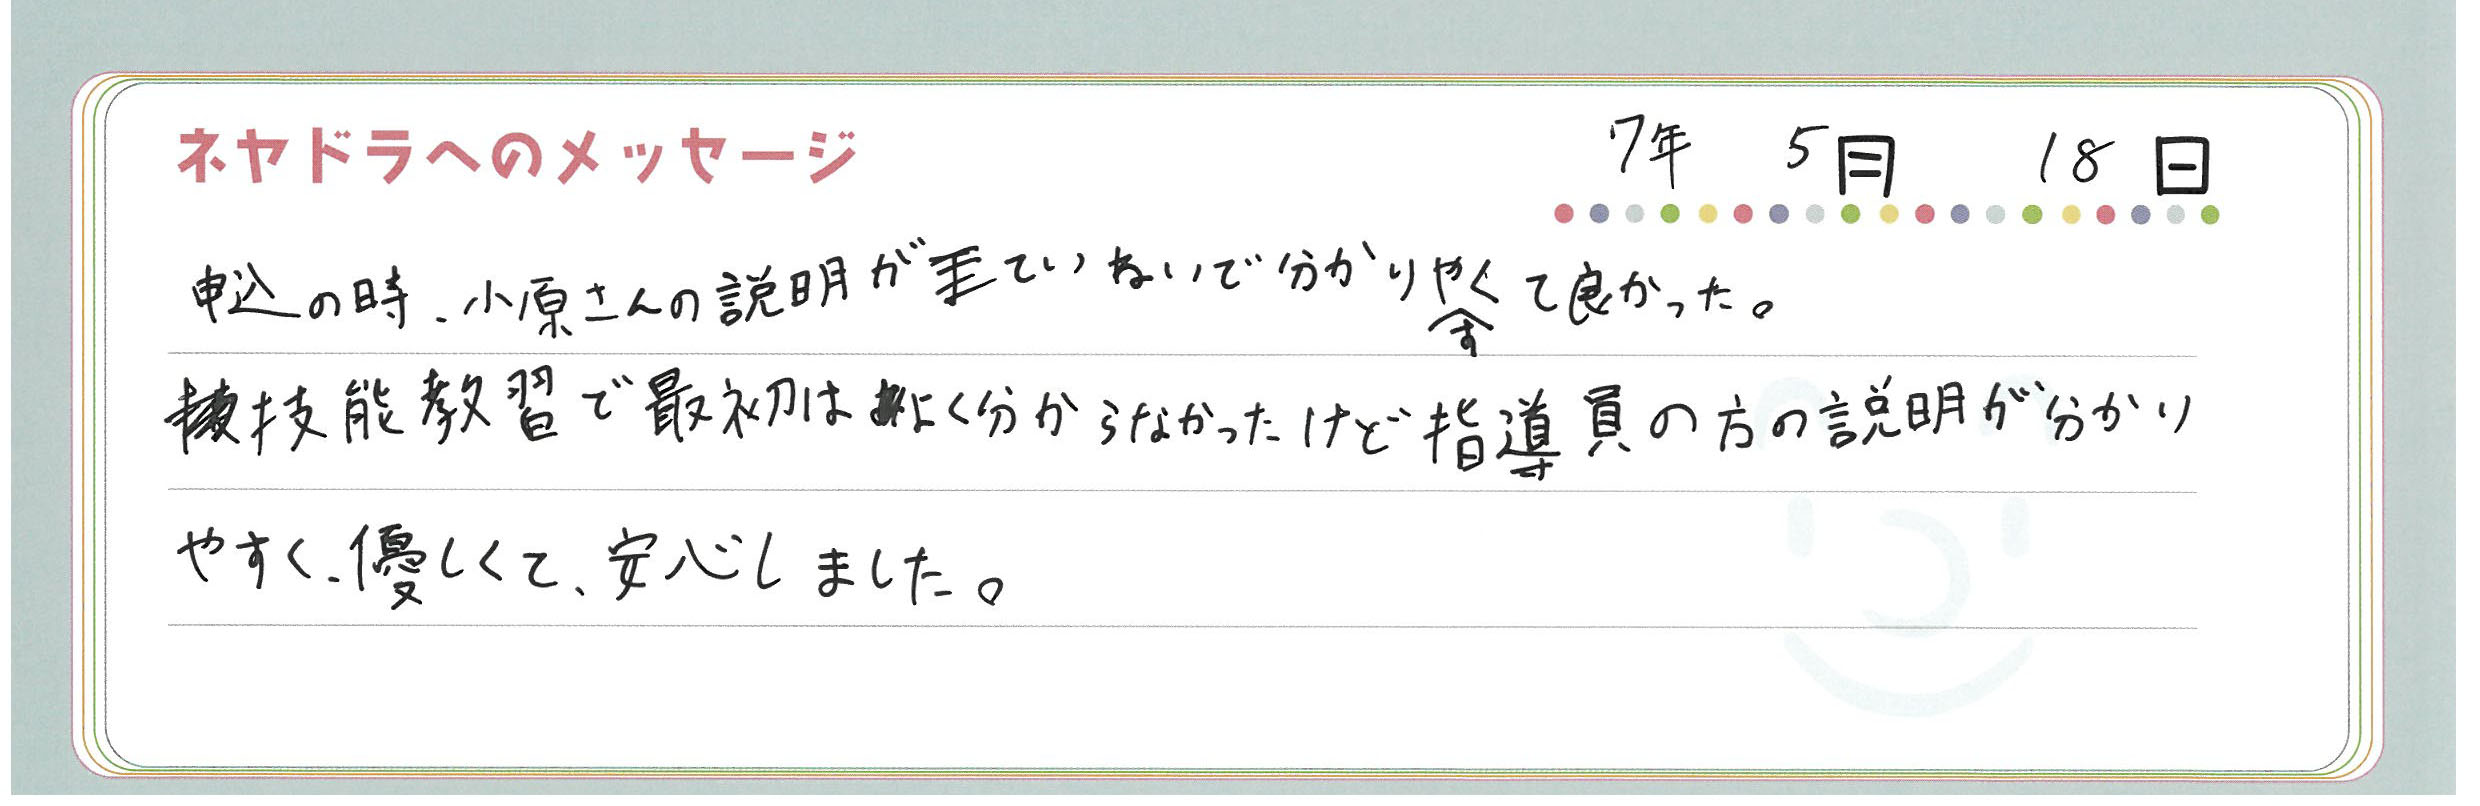 ネヤドラへのメッセージ
7年 5月 18日
申込の時、小原さんの説明がていねいで分かりやすくて良かった。
技能教習で最初はよく分からなかったけど指導員の方の説明が分かり
やすく、優しくて、安心しました。